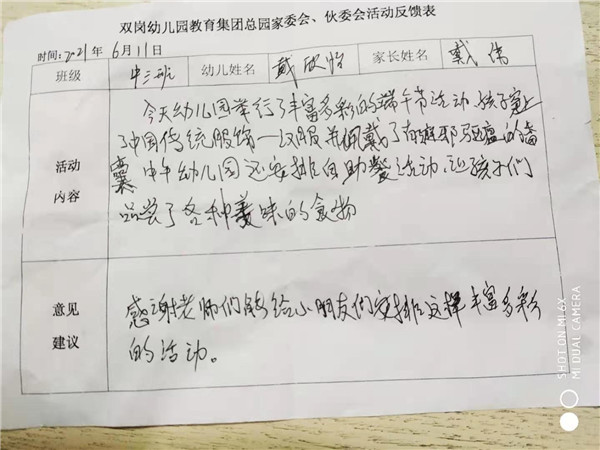 双岗幼儿园教育集团总园家委会、伙委会活动反馈表
时间:2021年 6月11日
班级 中三班 幼儿姓名 戴欣怡 家长姓名 戴伟
活动
内容
今天幼儿园举行了丰富多彩的端午节活动,孩子穿上
了中国传统服饰—汉服并佩戴了有避邪驱瘟的香
囊,中午幼儿园还安排自助餐活动,让孩子们
品尝了各种美味的食物
意见
建议
感谢老师们能给小朋友们安排这样丰富多彩
的活动。
SHOT ON MI 6X
MI DUAL CAMERA